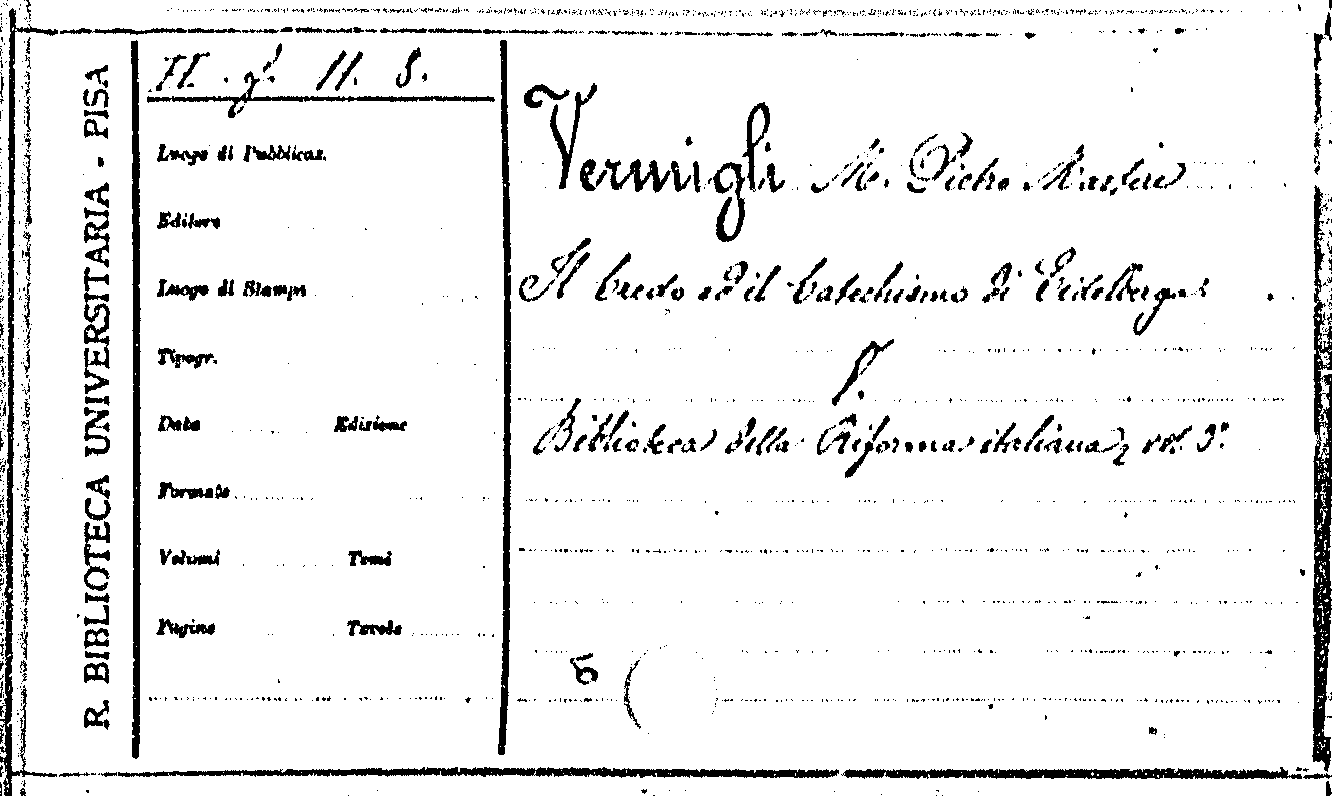 R. BIBLIOTECA UNIVERSITARIA - PISA
H. g. 11. 8.
Luogo di Pubblicaz.
Editore
Luogo di Stampa
Tipogr.
Data Edizione
Formato
Volumi Tomi
Pagine Tavole
Vermigli M. Pietro Martire
Il Credo ed il Catechismo di Eidelberga
V.
Biblioteca della Riforma italiana, vol. 3°.
5